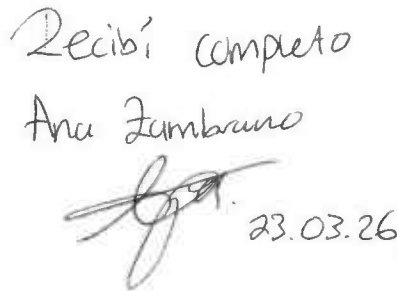 Recibí completo
Ana Zambrano
23.03.26